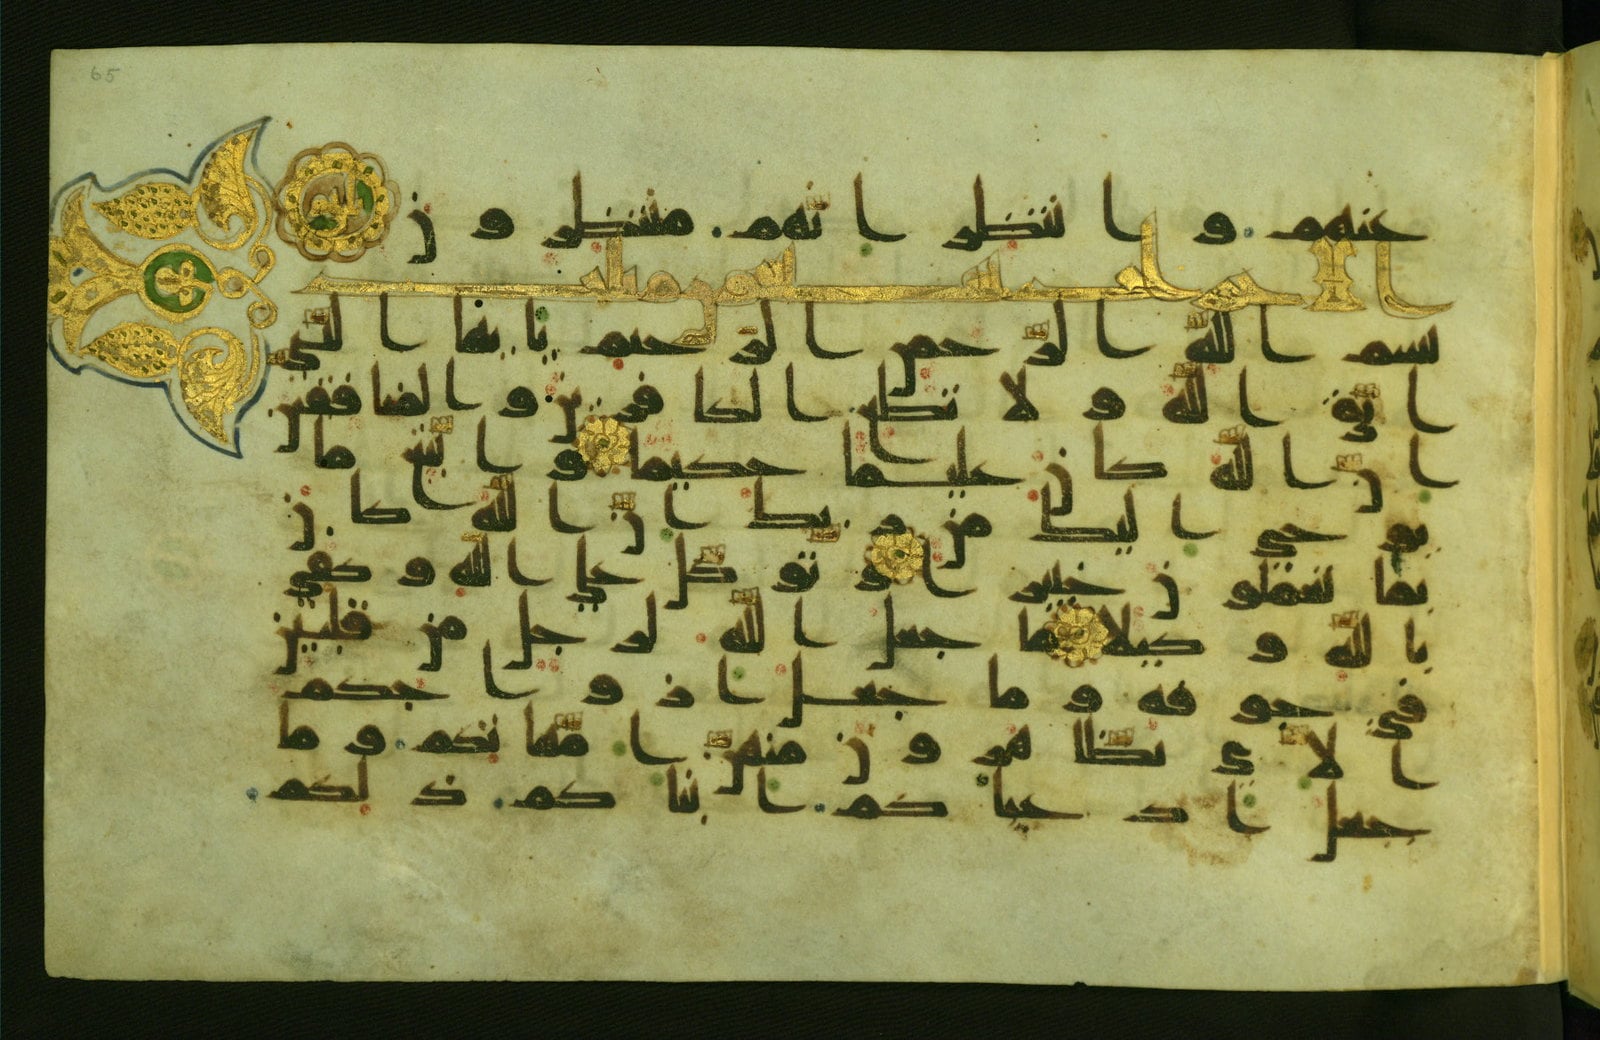 65
عنهم وانتظر انهم منتظرون
الاحزاب
بسم الله الرحمن الرحيم يايها النبي
اتق الله ولا تطع الكفرين والمنفقين
ان الله كان عليما حكيما واتبع ما
يوحى اليك من ربك ان الله كان
بما تعملون خبيرا وتوكل على الله وكفى
بالله وكيلا ما جعل الله لرجل من قلبين
في جوفه وما جعل ازوجكم
الاى تظهرون منهن امهتكم وما
جعل ادعياكم ابناكم ذلكم